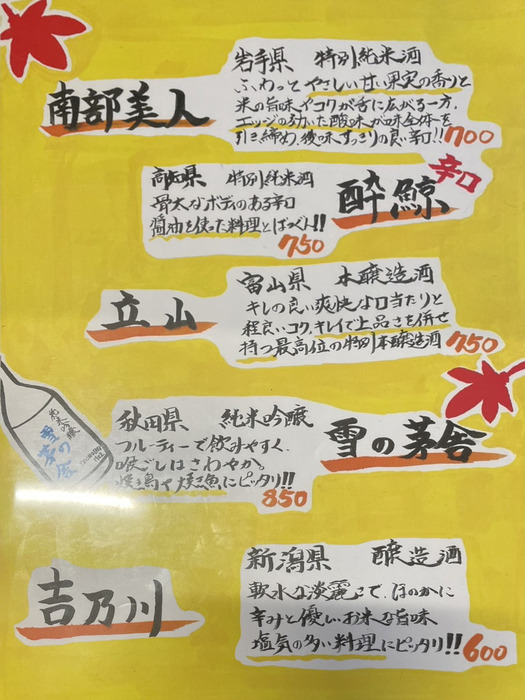 南部美人
岩手県 特別純米酒
ふわっとやさしい甘い果実の香りと
米の旨味、コクが舌に広がる一方、
エッジの効いた酸味が味全体を
引き締め、後味すっきりの良い辛口!! 700
酔鯨
辛口
高知県 特別純米酒
骨太なボディのある辛口
醤油を使った料理とばつぐん!!
750
立山
富山県 本醸造酒
キレの良い爽快な口当たりと
程良いコク、キレイで上品さを併せ
持つ最高位の特別本醸造酒 750
純米吟醸
雪の茅舎
秋田県 純米吟醸
フルーティーで飲みやすく、
喉ごしはさわやか。
焼鳥や焼魚にピッタリ!!
850
雪の茅舎
吉乃川
新潟県 醸造酒
軟水な淡麗さで、ほのかに
辛みと優しいお米な旨味
塩気の多い料理にピッタリ!! 600